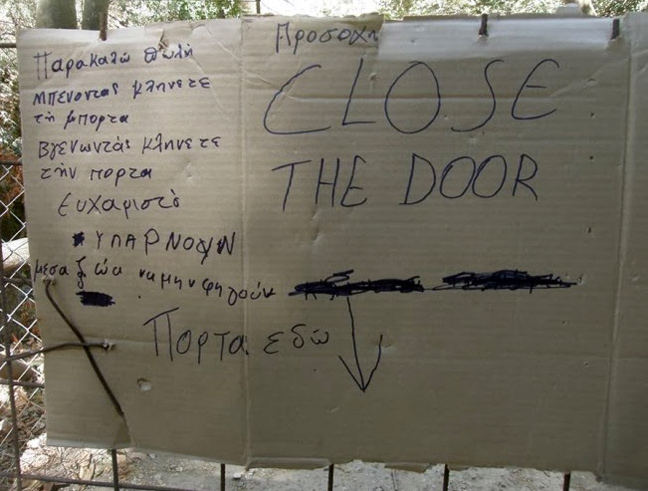 Παρακαλώ πωλή
μπενοντας κληνετε
τη μπορτα
Βγενωντάς κληνετε
τήν πορτα
Ευχαριστό
ΥΠΑΡΝΟΥΝ
μεσα ζώα να μην φηγούν
Προσοχη
CLOSE
THE DOOR
Πορτα εδώ